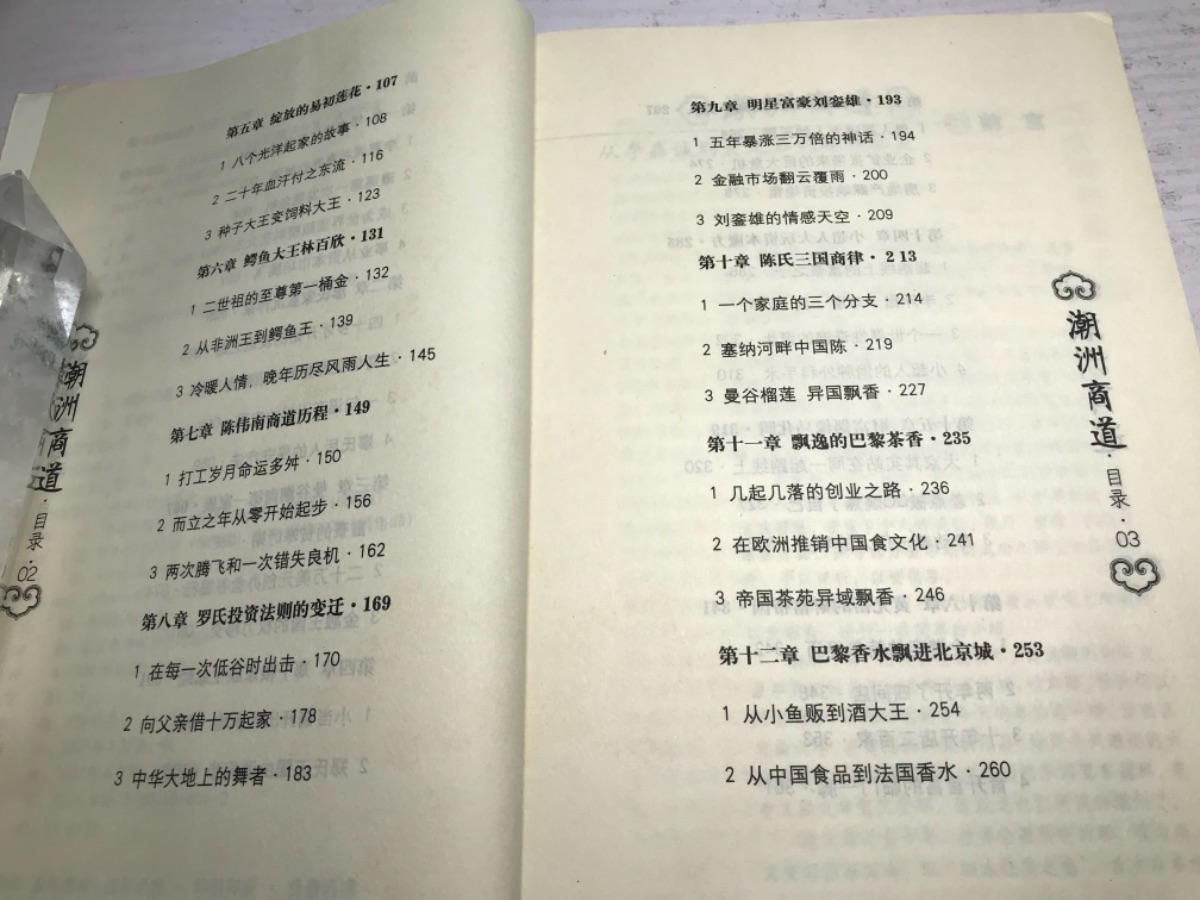 第五章 绽放的易初莲花·107
1 八个光洋起家的故事·108
2 二十年血汗付之东流·116
3 种子大王变饲料大王·123
第六章 鳄鱼大王林百欣·131
1 二世祖的至尊第一桶金·132
2 从非洲王到鳄鱼王·139
3 冷暖人情，晚年历尽风雨人生·145
第七章 陈伟南商道历程·149
1 打工岁月命运多舛·150
2 而立之年从零开始起步·156
3 两次腾飞和一次错失良机·162
第八章 罗氏投资法则的变迁·169
1 在每一次低谷时出击·170
2 向父亲借十万起家·178
3 中华大地上的舞者·183
潮洲商道·目录·02
第九章 明星富豪刘銮雄·193
1 五年暴涨三万倍的神话·194
2 金融市场翻云覆雨·200
3 刘銮雄的情感天空·209
第十章 陈氏三国商律·2 13
1 一个家庭的三个分支·214
2 塞纳河畔中国陈·219
3 曼谷榴莲 异国飘香·227
第十一章 飘逸的巴黎茶香·235
1 几起几落的创业之路·236
2 在欧洲推销中国食文化·241
3 帝国茶苑异域飘香·246
第十二章 巴黎香水飘进北京城·253
1 从小鱼贩到酒大王·254
2 从中国食品到法国香水·260
潮洲商道·目录·03